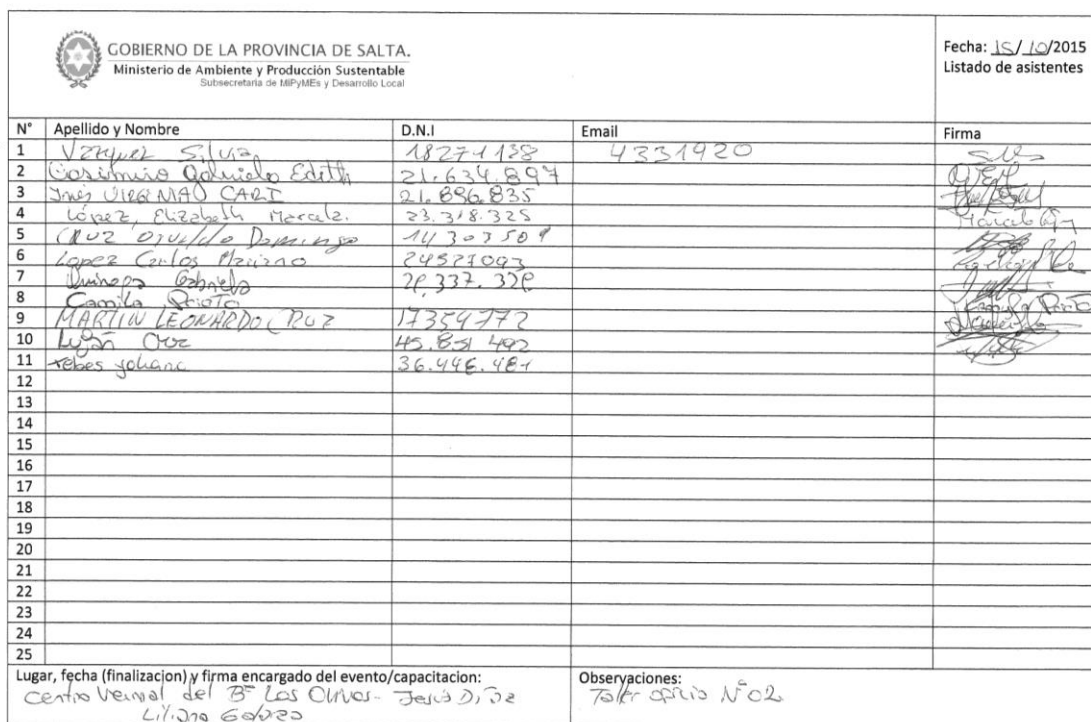 GOBIERNO DE LA PROVINCIA DE SALTA.
Ministerio de Ambiente y Producción Sustentable
Subsecretaria de MiPyMEs y Desarrollo Local
Fecha: 15/10/2015
Listado de asistentes
N° Apellido y Nombre D.N.I Email Firma
1 Vazquez Silvia 18271138 4331920
2 Casimiro Gabriela Edith 21.634.897
3 Inés VIRGINIA CARI 21.896.835
4 López, Elizabeth Marcela. 23.318.325
5 CRUZ Osvaldo Domingo 14303509
6 Lopez Carlos Mariano 24527093
7 Quiroga Gabriela 28.337.328
8 Camila Prieto
9 MARTIN LEONARDO CRUZ 17354772
10 Luján Cruz 45.851 492
11 yohana 36.446.481
12
13
14
15
16
17
18
19
20
21
22
23
24
25
Lugar, fecha (finalizacion) y firma encargado del evento/capacitacion:
Centro Vecinal del B° Los Olivos -
Liliana
Observaciones:
Taller oficio N° 02